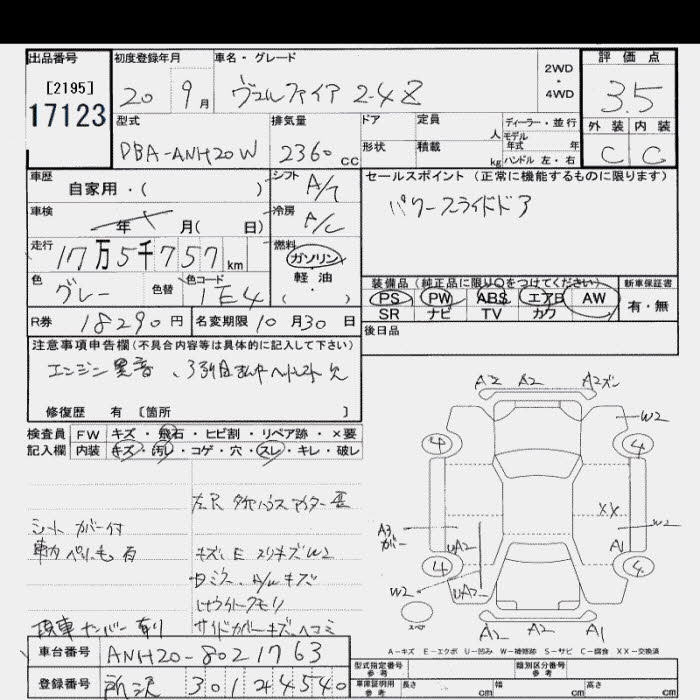 出品番号
[2195]
17123
初度登録年月
20 9月
車名・グレード
ヴェルファイア 2.4 Z
2WD
・
4WD
評価点
3.5
外装 内装
C C
型式
DBA-ANH20W
排気量
2360 cc
ドア
形状
定員 人
積載 kg
ディーラー・並行
モデル年式 年
ハンドル 左・右
車歴
自家用・( )
シフト
A/T
車検
年 月( 日)
冷房
A/C
走行
17万5千757 km
燃料
ガソリン
軽油
( )
色
グレー
色替
色コード
1E4
R券 18290円
名変期限 10月30日
セールスポイント (正常に機能するものに限ります)
パワースライドドア
装備品 (純正品に限り○をつけてください)
PS PW ABS エアB AW
SR ナビ TV カワ
新車保証書
有・無
後日品
注意事項申告欄(不具合内容等は具体的に記入して下さい)
エンジン異音、3列目 ヘッドレスト欠
修復歴 有 〔箇所 〕
検査員記入欄
FW キズ・飛石・ヒビ割・リペア跡・×要
内装 キズ・汚レ・コゲ・穴・スレ・キレ・破レ
左R タイヤハウス アウター 歪
シートカバー付
車内 ペットの毛 有
キズ E スリキズ W2
A/Wキズ
クモリ
サイドカバーキズ、ヘコミ
ナンバー有り
車台番号 ANH20-8021763
登録番号 所沢 301 そ 4540
A2 A2 A2ズレ
W2
4 4
XX
A3
カバー
UA2
W2
A1
4 4
W2
UA2
スペア
A2 A2 A1
A-キズ E-エクボ U-凹み W-補修跡 S-サビ C-腐食 XX-交換済
型式指定番号 参考
類別区分番号 参考
車庫証明用 参考
長さ cm
幅 cm
高さ cm